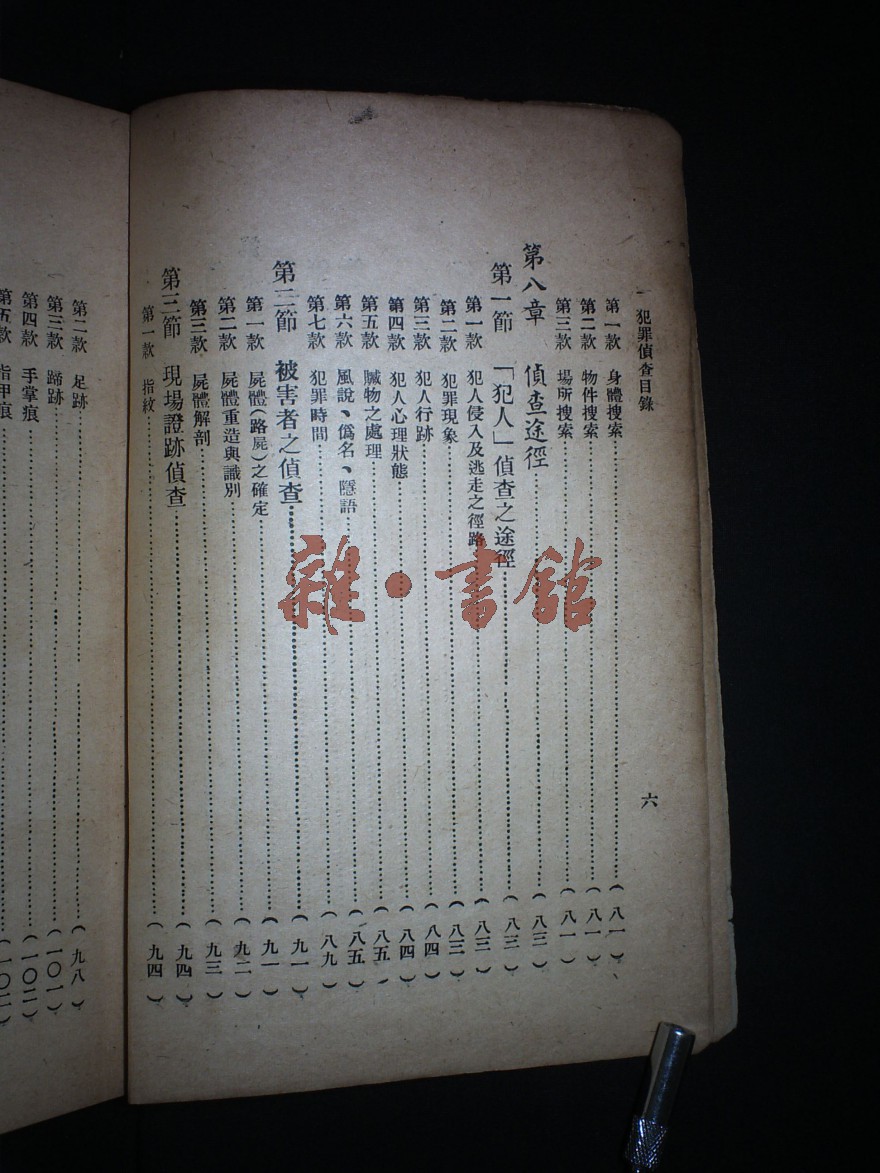 犯罪偵查目錄 六
第一款 身體搜索 (八一)
第二款 物件搜索 (八一)
第三款 場所搜索 (八一)
第八章 偵查途徑 (八三)
第一節 「犯人」偵查之途徑 (八三)
第一款 犯人侵入及逃走之徑路 (八三)
第二款 犯罪現象 (八三)
第三款 犯人行跡 (八四)
第四款 犯人心理狀態 (八四)
第五款 贓物之處理 (八五)
第六款 風說、僞名、隱語 (八五)
第七款 犯罪時間 (八九)
第二節 被害者之偵查 (九一)
第一款 屍體(路屍)之確定 (九一)
第二款 屍體重造與識別 (九二)
第三款 屍體解剖 (九三)
第三節 現場證跡偵查 (九四)
第一款 指紋 (九四)
第二款 足跡 (九八)
第三款 蹄跡 (一〇一)
第四款 手掌痕 (一〇二)
第五款 指甲痕 (一〇二
雜·書館